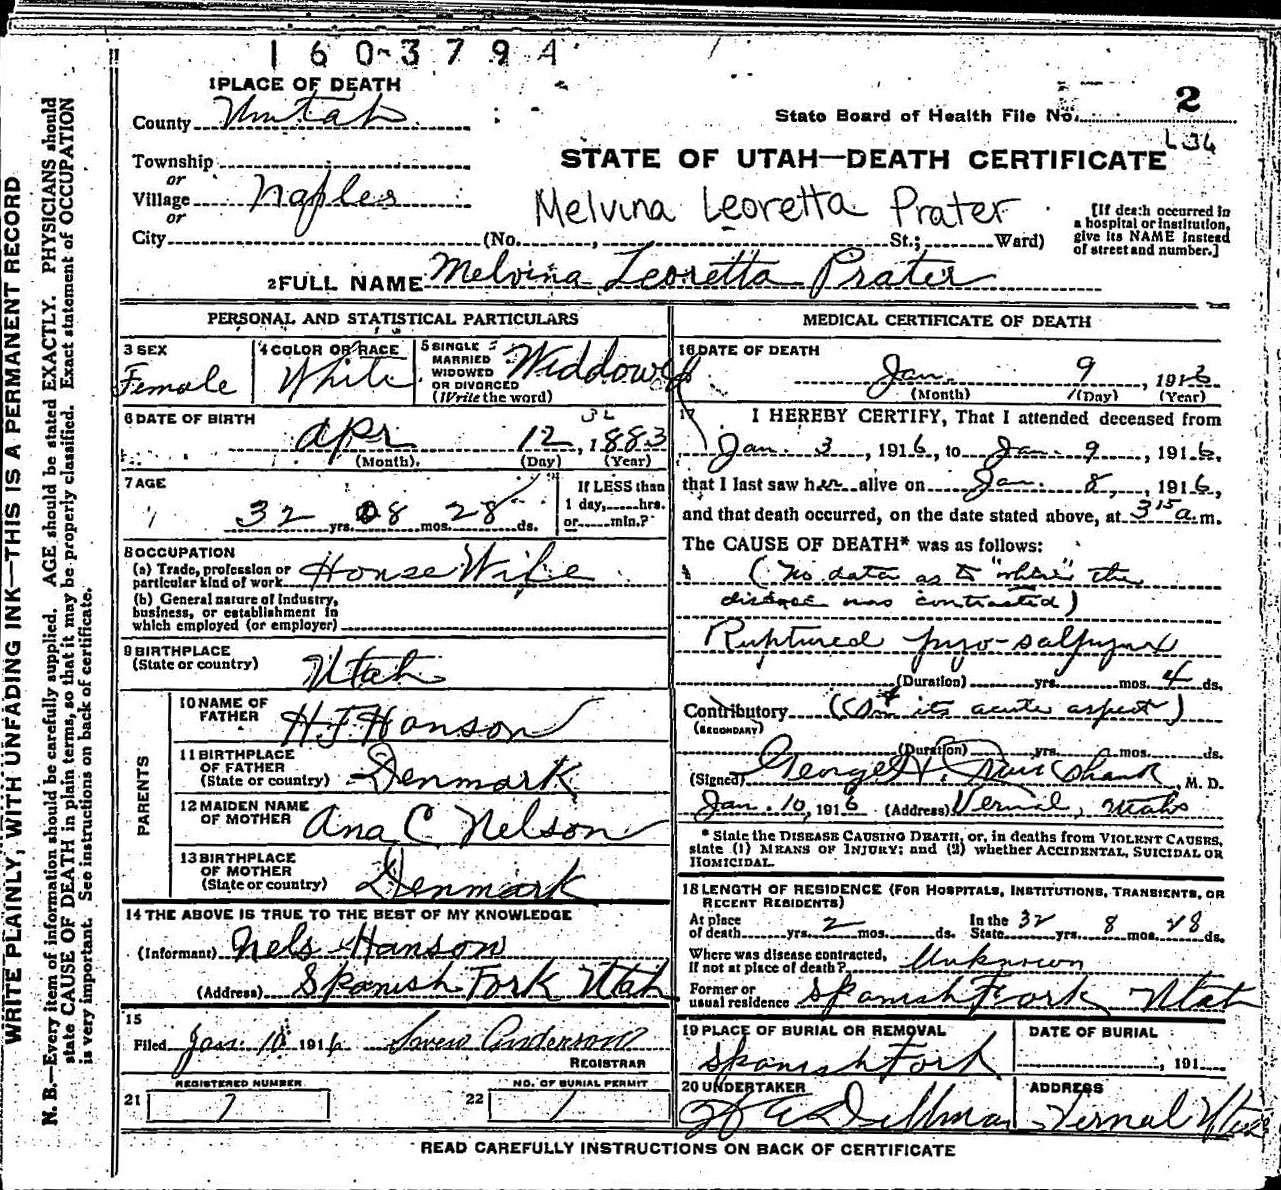 1603794
1 PLACE OF DEATH
County Uintah
State Board of Health File No. 2
Township
or
Village Naples
or
City (No. , St.; Ward)
STATE OF UTAH—DEATH CERTIFICATE
Melvina Leoretta Prater
[If death occurred in
a hospital or institution,
give its NAME instead
of street and number.]
2 FULL NAME Melvina Leoretta Prater
PERSONAL AND STATISTICAL PARTICULARS
3 SEX
Female
4 COLOR OR RACE
White
5 SINGLE
MARRIED
WIDOWED
OR DIVORCED
(Write the word)
Widdowed
6 DATE OF BIRTH
Apr 12, 1883
(Month) (Day) (Year)
7 AGE
32 yrs. 08 mos. 28 ds.
If LESS than
1 day, hrs.
or min.?
8 OCCUPATION
(a) Trade, profession or
particular kind of work House Wife
(b) General nature of Industry,
business, or establishment in
which employed (or employer)
9 BIRTHPLACE
(State or country) Utah
PARENTS
10 NAME OF
FATHER H J Hanson
11 BIRTHPLACE
OF FATHER
(State or country) Denmark
12 MAIDEN NAME
OF MOTHER Ana C Nelson
13 BIRTHPLACE
OF MOTHER
(State or country) Denmark
14 THE ABOVE IS TRUE TO THE BEST OF MY KNOWLEDGE
(Informant) Nels Hanson
(Address) Spanish Fork Utah
15
Filed Jan. 10 1916 Anderson
REGISTRAR
REGISTERED NUMBER
21 7
NO. OF BURIAL PERMIT
22 1
MEDICAL CERTIFICATE OF DEATH
16 DATE OF DEATH
Jan. 9, 1916
(Month) (Day) (Year)
17 I HEREBY CERTIFY, That I attended deceased from
Jan. 3, 1916, to Jan. 9, 1916,
that I last saw her alive on Jan. 8, 1916,
and that death occurred, on the date stated above, at 3 15 a.m.
The CAUSE OF DEATH* was as follows:
(No data as to "where" the
disease was contracted)
Ruptured pyo-salpynx
(Duration) yrs. mos. 4 ds.
Contributory (In its acute aspect)
(SECONDARY)
(Duration) yrs. mos. ds.
(Signed) George H. Cruickshank, M. D.
Jan. 10, 1916 (Address) Vernal, Utah
* State the DISEASE CAUSING DEATH, or, in deaths from VIOLENT CAUSES,
state (1) MEANS OF INJURY; and (2) whether ACCIDENTAL, SUICIDAL OR
HOMICIDAL.
18 LENGTH OF RESIDENCE (FOR HOSPITALS, INSTITUTIONS, TRANSIENTS, OR
RECENT RESIDENTS)
At place
of death yrs. 2 mos. ds.
In the
State 32 yrs. 8 mos. 28 ds.
Where was disease contracted,
if not at place of death? Unknown
Former or
usual residence Spanish Fork Utah
19 PLACE OF BURIAL OR REMOVAL
Spanish Fork
DATE OF BURIAL
, 191
20 UNDERTAKER
Dillman
ADDRESS
Vernal Utah
READ CAREFULLY INSTRUCTIONS ON BACK OF CERTIFICATE
WRITE PLAINLY, WITH UNFADING INK—THIS IS A PERMANENT RECORD
N. B.—Every item of information should be carefully supplied. AGE should be stated EXACTLY. PHYSICIANS should
state CAUSE OF DEATH in plain terms, so that it may be properly classified. Exact statement of OCCUPATION
is very important. See instructions on back of certificate.